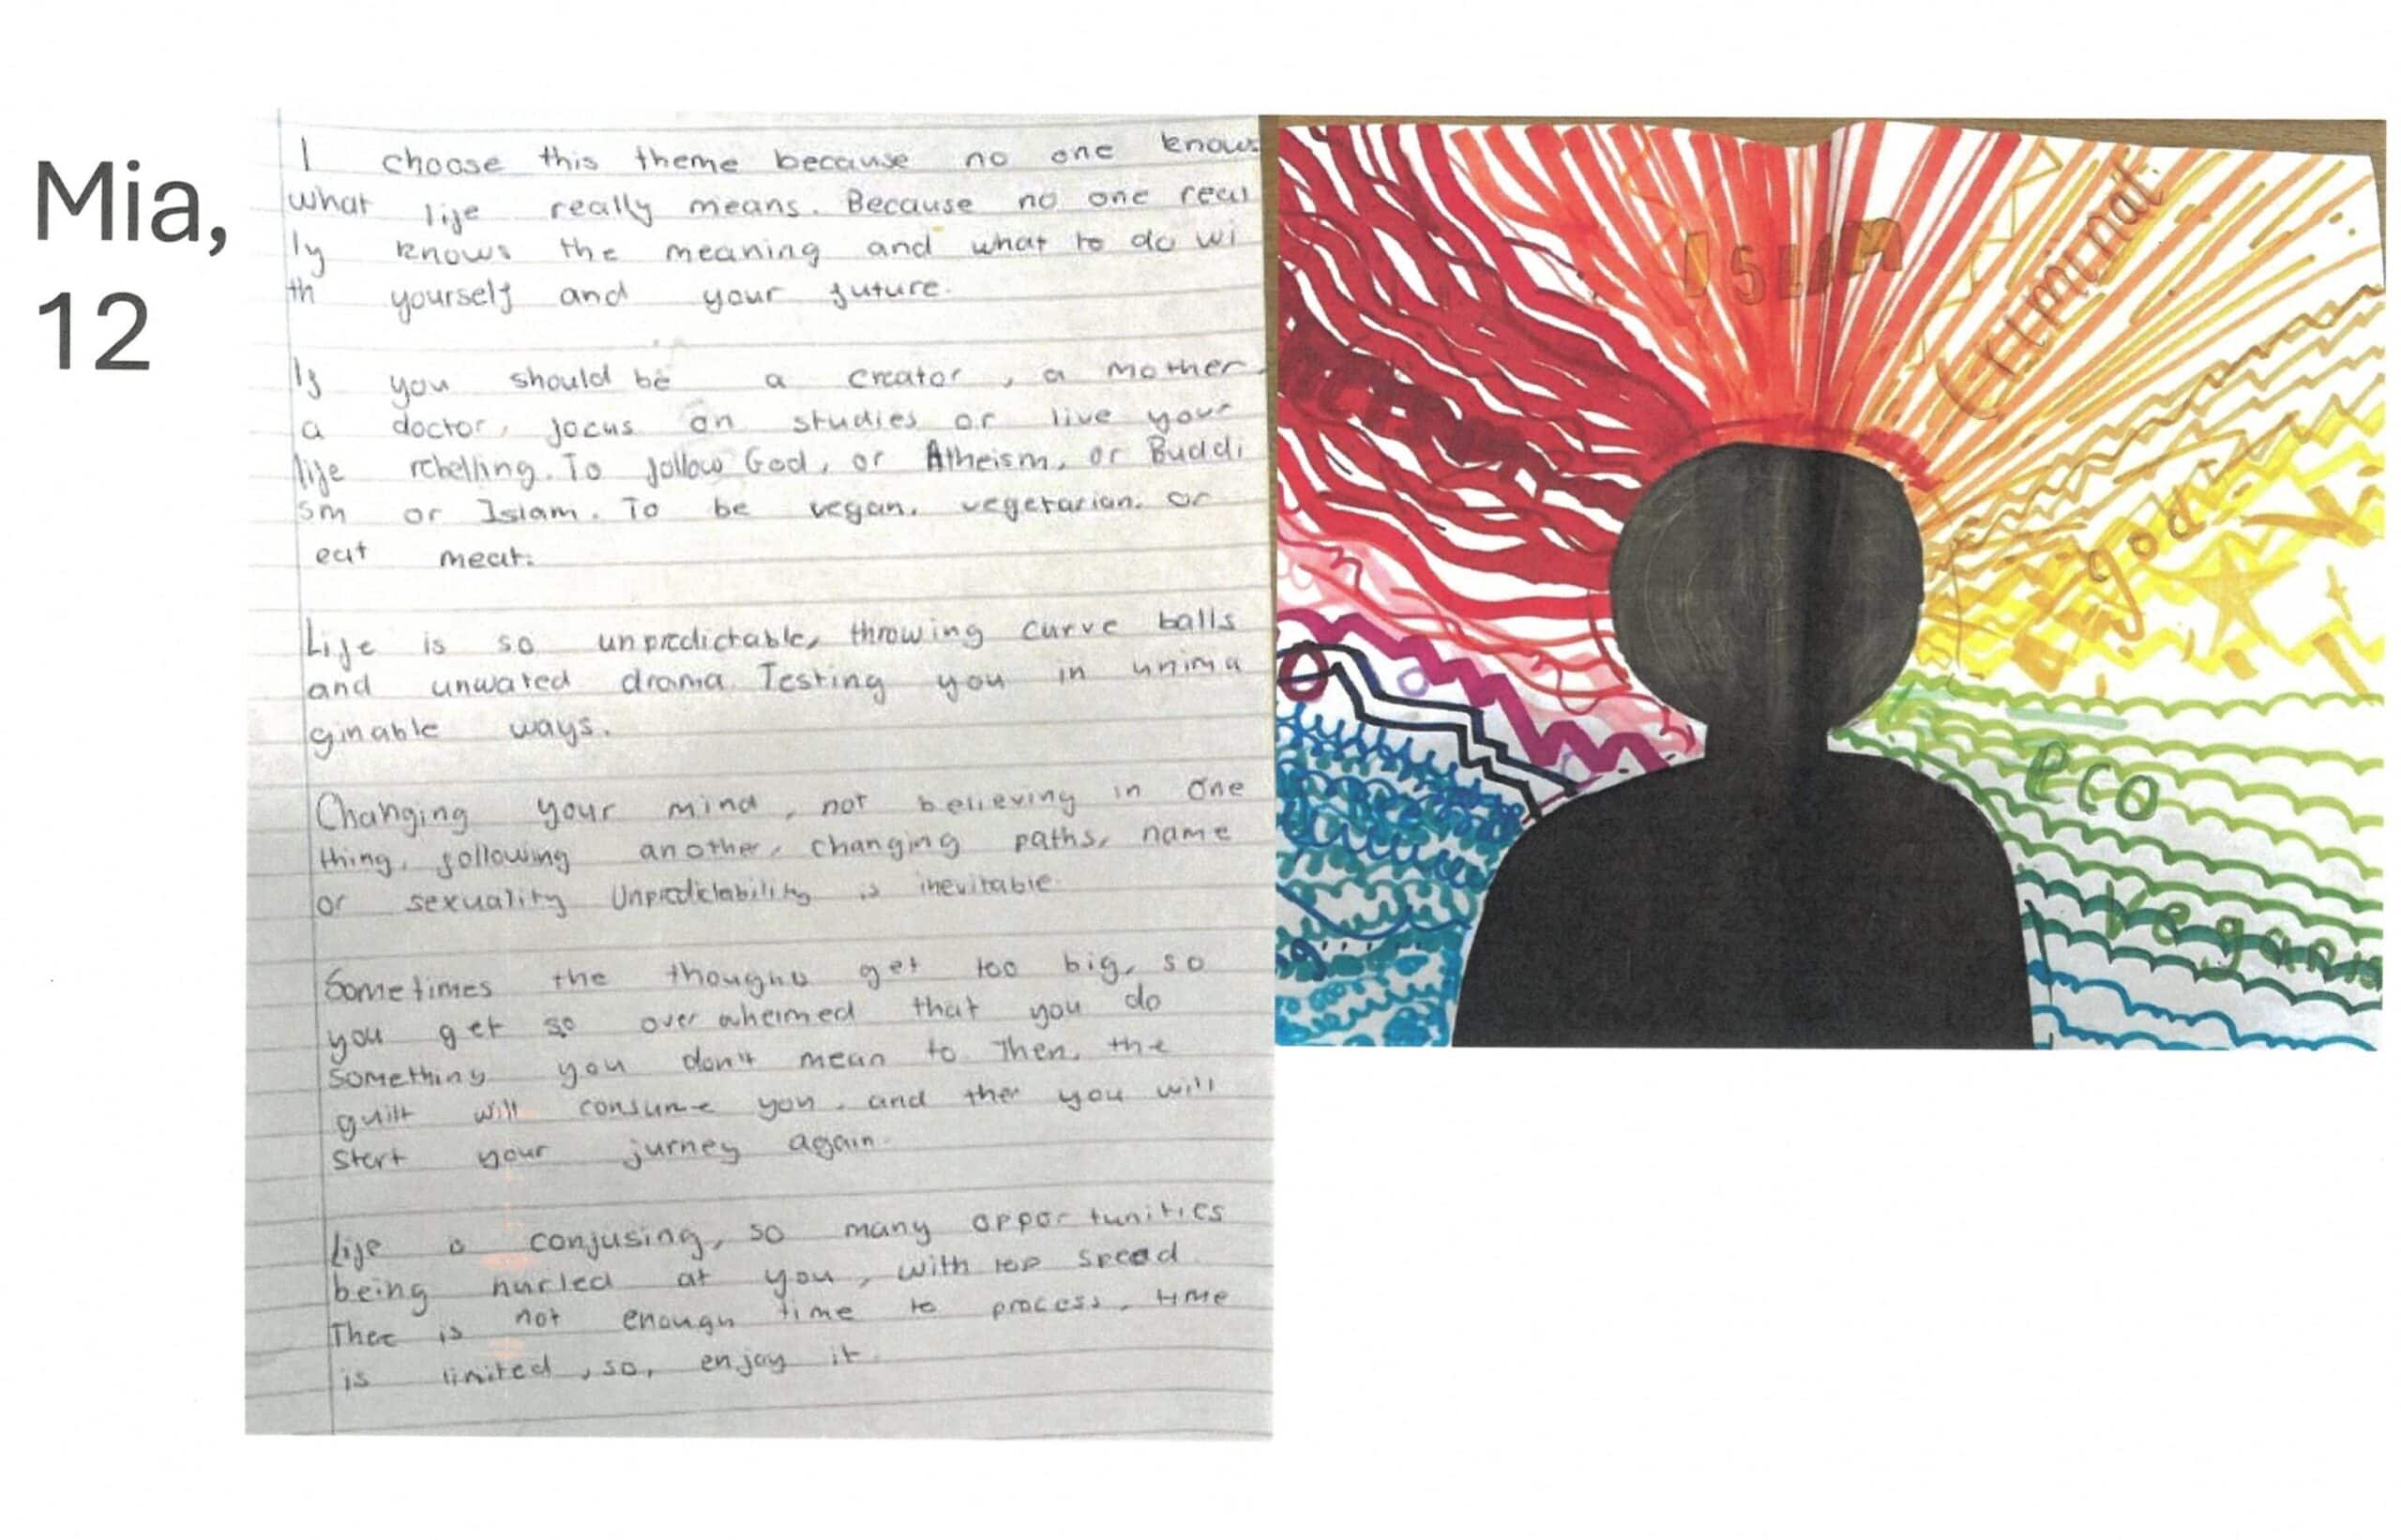 Mia,
12
I choose this theme because no one knows
what life really means. Because no one real
ly knows the meaning and what to do wi
th yourself and your future.
If you should be a creator, a mother,
a doctor, focus on studies or live your
life rebelling. To follow God, or Atheism, or Buddi
sm or Islam. To be vegan, vegetarian, or
eat meat.
Life is so unpredictable, throwing curve balls
and unwated drama. Testing you in unima
ginable ways.
Changing your mind, not believing in one
thing, following another, changing paths, name
or sexuality Unpredictability is inevitable.
Sometimes the thoughts get too big, so
you get so overwhelmed that you do
something you don't mean to. Then, the
guilt will consume you, and then you will
start your jurney again.
Life is confusing, so many opportunities
being hurled at you, with top speed.
There is not enough time to process, time
is limited, so, enjoy it.
ISLAM
Criminal
god?
eco